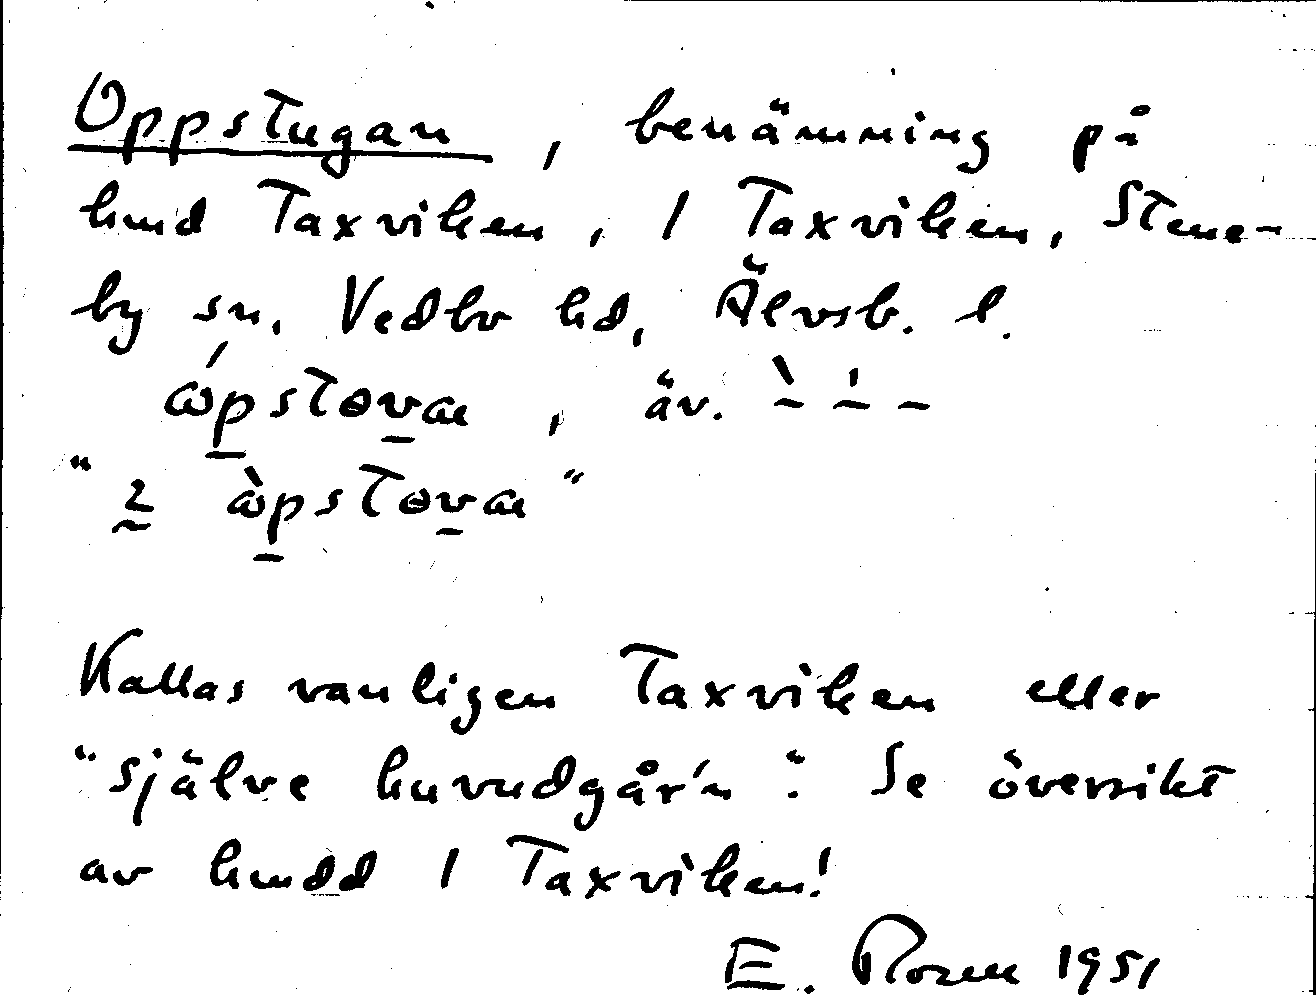 Oppstugan, benämning på
hmd Taxviken, 1 Taxviken, Stene-
by sn, Vedbo hd, Älvsb. l.
äv.
Kallas vanligen Taxviken eller
"själve huvudgår'n". Se översikt
av hmdd 1 Taxviken!
E. Rosen 1951